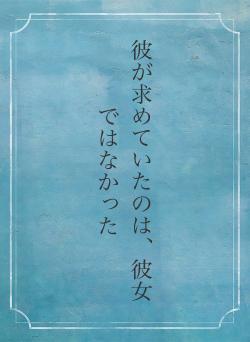 彼が求めていたのは、彼女
ではなかった